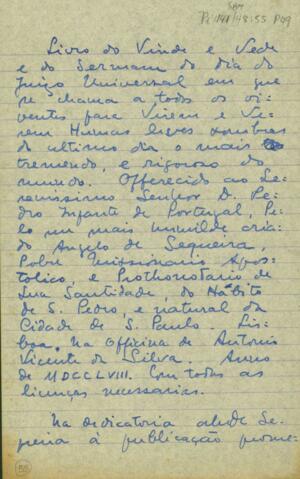 Livro do Vinde e Vede
e do Sermam do dia do
Juizo Universal em que
se chama a todos os vi-
ventes para virem e ve-
rem Humas leves sombras
do ultimo dia o mais
tremendo, e rigoroso do
mundo. Offerecido ao Se-
renissimo Senhor D. Pe-
dro Infante de Portugal, Pe-
lo seu mais humilde cria-
do Angelo de Sequeira,
Pobre Missionario Apos-
tolico, e Prothonotario de
Sua Santidade, do Habito
de S. Pedro, e natural da
Cidade de S. Paulo. Lis-
boa. Na Officina de Antonio
Vicente da Silva. Anno
de MDCCLVIII. Com todas as
licenças necessarias.
Na dedicatoria alude Se-
queira à publicação prome-